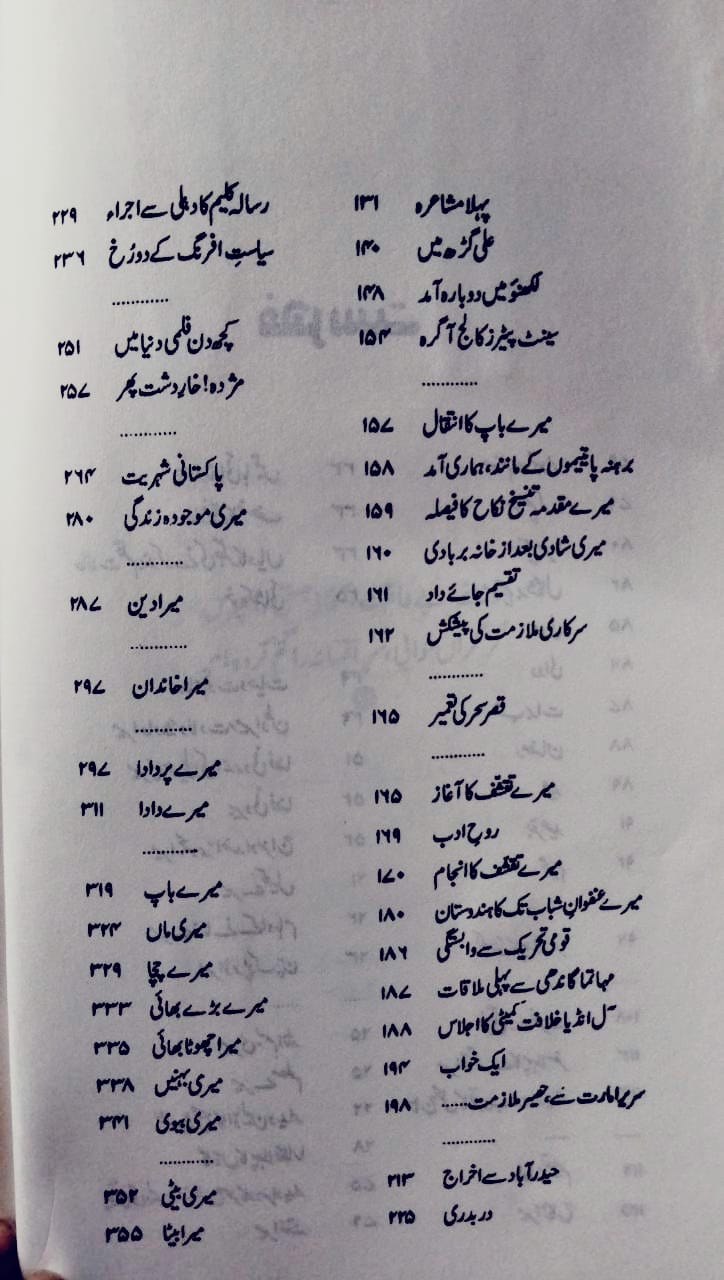 پہلا مشاعرہ ۱۳۱
علی گڑھ میں ۱۴۰
لکھنؤ میں دوبارہ آمد ۱۴۸
سینٹ پیٹرز کالج آگرہ ۱۵۴
............
میرے باپ کا انتقال ۱۵۷
برہنہ پا یتیموں کے مانند، ہماری آمد ۱۵۸
میرے مقدمہ تنسیخِ نکاح کا فیصلہ ۱۵۹
میری شادی بعد از خانہ بربادی ۱۶۰
تقسیم جائے داد ۱۶۱
سرکاری ملازمت کی پیشکش ۱۶۲
............
قصرِ سحر کی تعمیر ۱۶۵
............
میرے تقشف کا آغاز ۱۶۵
روحِ ادب ۱۶۹
میرے تقشف کا انجام ۱۷۰
میرے عنفوانِ شباب تک کا ہندوستان ۱۸۰
قومی تحریک سے وابستگی ۱۸۶
مہاتما گاندھی سے پہلی ملاقات ۱۸۷
آل انڈیا خلافت کمیٹی کا اجلاس ۱۸۸
ایک خواب ۱۹۴
سریرِ امارت سے، حصیرِ ملازمت...... ۱۹۸
............
حیدرآباد سے اخراج ۲۱۳
دربدری ۲۲۵
رسالہ کلیم کا دہلی سے اجراء ۲۲۹
سیاستِ افرنگ کے دو رُخ ۲۳۶
............
کچھ دن فلمی دنیا میں ۲۵۱
مژدہ! خارِ دشت پھر ۲۵۷
............
پاکستانی شہریت ۲۶۴
میری موجودہ زندگی ۲۸۰
............
میرا دین ۲۸۷
............
میرا خاندان ۲۹۷
............
میرے پردادا ۲۹۷
میرے دادا ۳۱۱
............
میرے باپ ۳۱۹
میری ماں ۳۲۴
میرے چچا ۳۲۹
میرے بڑے بھائی ۳۳۳
میرا چھوٹا بھائی ۳۳۵
میری بہنیں ۳۳۸
میری بیوی ۳۴۱
............
میری بیٹی ۳۵۲
میرا بیٹا ۳۵۵